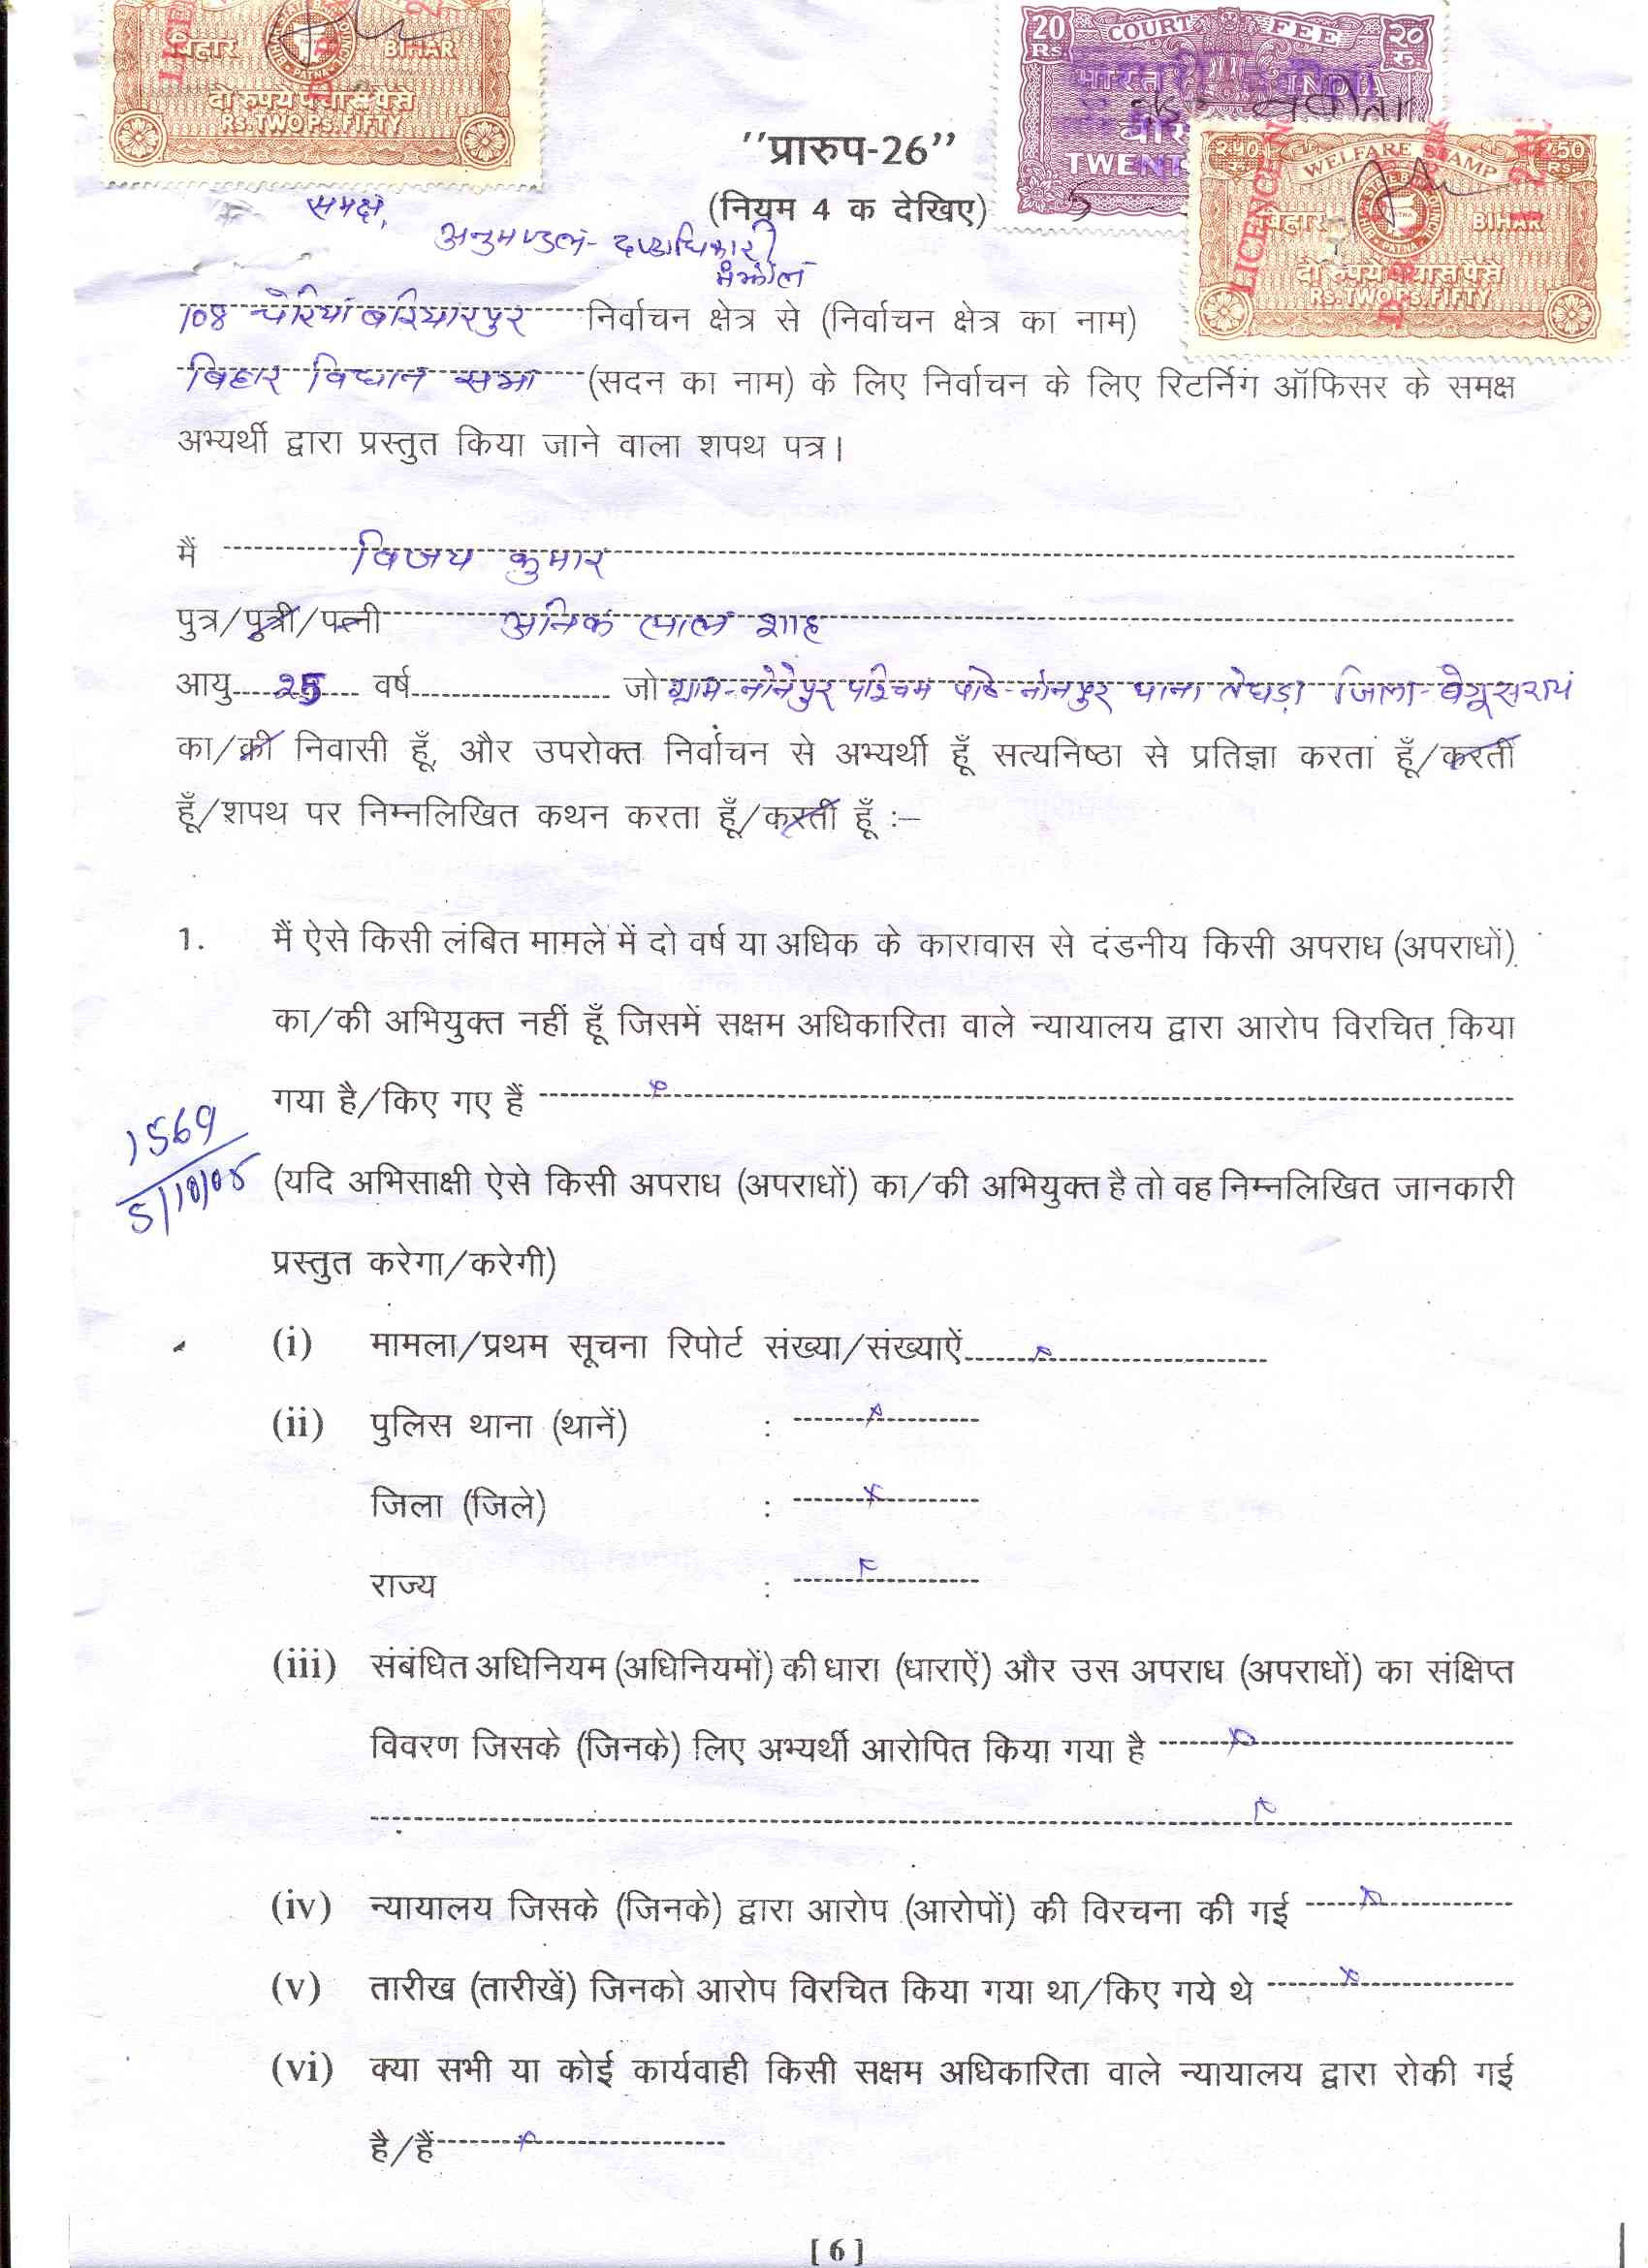 बिहार BIHAR
दो रुपये पचास पैसे
Rs. TWO Ps. FIFTY
20 Rs. COURT FEE २० रु.
भारत INDIA
TWENT
२५० WELFARE STAMP 250
LICENCE
बिहार BIHAR
दो रुपये पचास पैसे
Rs. TWO Ps. FIFTY
"प्रारुप-26"
(नियम 4 क देखिए)
समक्ष,
अनुमण्डल- दण्डाधिकारी
मंझौल
108 चेरिया बरियारपुर निर्वाचन क्षेत्र से (निर्वाचन क्षेत्र का नाम)
बिहार विधान सभा (सदन का नाम) के लिए निर्वाचन के लिए रिटर्निग ऑफिसर के समक्ष
अभ्यर्थी द्वारा प्रस्तुत किया जाने वाला शपथ पत्र।
मैं विजय कुमार
पुत्र/पुत्री/पत्नी लाल शाह
आयु 25 वर्ष जो ग्राम-नोनेपुर पश्चिम नोनपुर थाना तेघड़ा जिला-बेगूसराय
का/की निवासी हूँ, और उपरोक्त निर्वाचन से अभ्यर्थी हूँ सत्यनिष्ठा से प्रतिज्ञा करता हूँ/करती
हूँ/शपथ पर निम्नलिखित कथन करता हूँ/करती हूँ :–
1. मैं ऐसे किसी लंबित मामले में दो वर्ष या अधिक के कारावास से दंडनीय किसी अपराध (अपराधों)
का/की अभियुक्त नहीं हूँ जिसमें सक्षम अधिकारिता वाले न्यायालय द्वारा आरोप विरचित किया
गया है/किए गए हैं x
1569
5/10/05
(यदि अभिसाक्षी ऐसे किसी अपराध (अपराधों) का/की अभियुक्त है तो वह निम्नलिखित जानकारी
प्रस्तुत करेगा/करेगी)
(i) मामला/प्रथम सूचना रिपोर्ट संख्या/संख्याऐं x
(ii) पुलिस थाना (थानें) : x
जिला (जिले) : x
राज्य : x
(iii) संबंधित अधिनियम (अधिनियमों) की धारा (धाराऐं) और उस अपराध (अपराधों) का संक्षिप्त
विवरण जिसके (जिनके) लिए अभ्यर्थी आरोपित किया गया है x
x
(iv) न्यायालय जिसके (जिनके) द्वारा आरोप (आरोपों) की विरचना की गई x
(v) तारीख (तारीखें) जिनको आरोप विरचित किया गया था/किए गये थे x
(vi) क्या सभी या कोई कार्यवाही किसी सक्षम अधिकारिता वाले न्यायालय द्वारा रोकी गई
है/हैं x
[ 6 ]